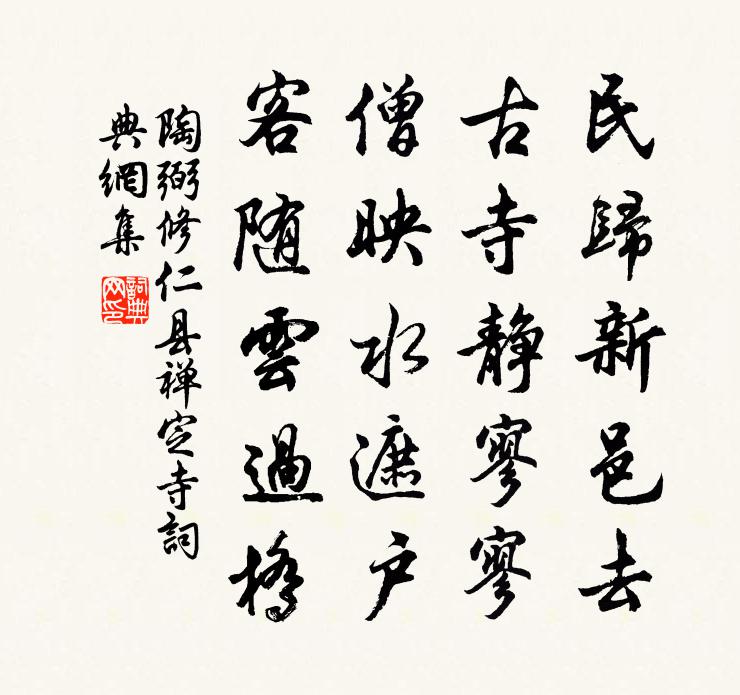 民歸新邑去
古寺静寥寥
僧映水遮户
客随雲過橋
陶弼修仁县禅定寺詞
典網集
詞典网印